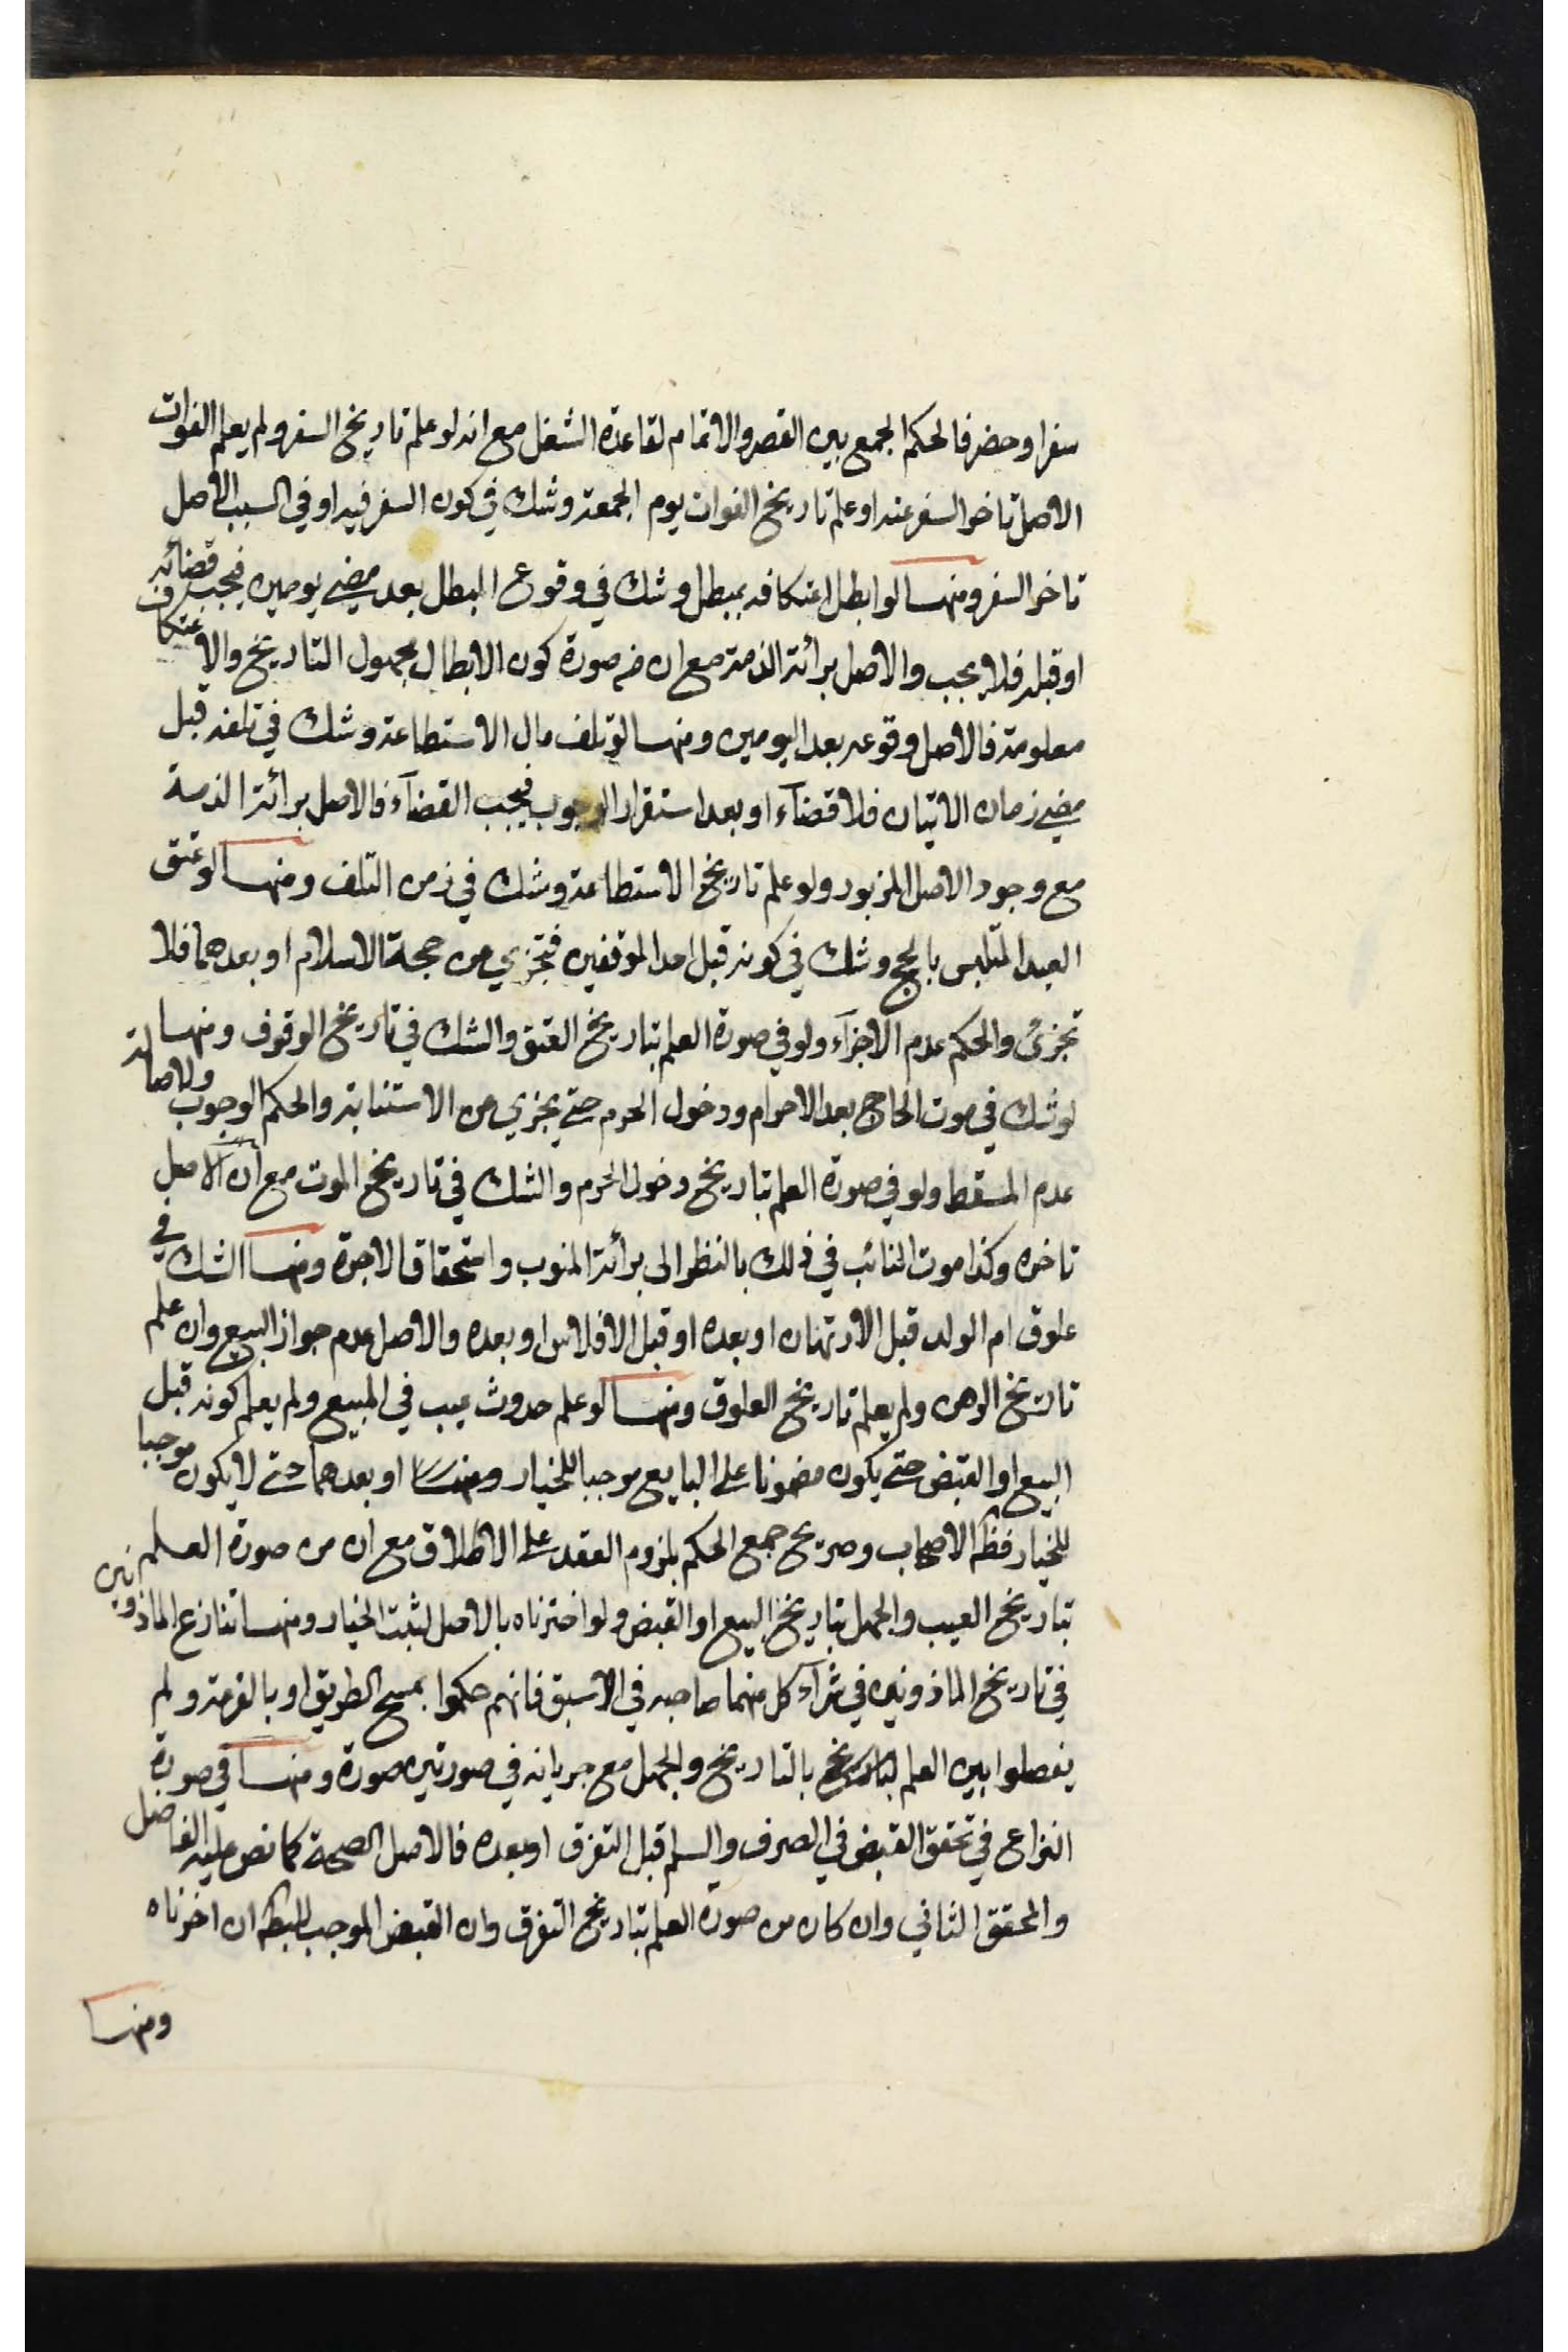 سفر او حضر فالحكم الجمع بين القصر والاتمام لقاعدة الشغل مع انه لو علم تاريخ السفر ولم يعلم الفوات
الاصل تاخر السفر عنه او علم تاريخ الفوات يوم الجمعة وشك في كون السفر فيه او في السبت الاصل
تاخر السفر ومنها لو ابطل اعتكافه بمبطل وشك في وقوع المبطل بعد مضي يومين فيجب قضائه
او قبله فلا يجب والاصل برائة الذمة مع ان في صورة كون الابطال مجهول التاريخ والاعتكاف
معلومة فالاصل وقوعه بعد اليومين ومنها لو تلف مال الاستطاعة وشك في تلفه قبل
مضي زمان الاتيان فلا قضآء او بعد استقرار الوجوب فيجب القضآء فالاصل برائة الذمة
مع وجود الاصل المزبور ولو علم تاريخ الاستطاعة وشك في زمن التلف ومنها لو عتق
العبد المتلبس بالحج وشك في كونه قبل احد الموقفين فتجزي من حجة الاسلام او بعدهما فلا
تجزئ والحكم عدم الاجزآء ولو في صورة العلم بتاريخ العتق والشك في تاريخ الوقوف ومنها
لو شك في موت الحاج بعد الاحرام ودخول الحرم حتى يجزي من الاستنابة والحكم الوجوب ولاصالة
عدم المسقط ولو في صورة العلم بتاريخ دخول الحرم والشك في تاريخ الموت مع ان الاصل
تاخره وكذا موت النائب في ذلك بالنظر الى برائة المنوب واستحقاق الاجرة ومنها الشك في
علوق ام الولد قبل الارتهان او بعده او قبل الافلاس او بعده والاصل عدم جواز البيع وان علم
تاريخ الرهن ولم يعلم تاريخ العلوق ومنها لو علم حدوث عيب في المبيع ولم يعلم كونه قبل
البيع او القبض حتى يكون مضمونا على البايع موجبا للخيار او بعدهما حتى لا يكون موجبا
للخيار فظ الاصحاب وصريح جمع الحكم بلزوم العقد على الاطلاق مع ان من صورة العلم
بتاريخ العيب والجهل بتاريخ البيع او القبض ولو اخرناه بالاصل لثبت الخيار ومنها تنازع الماذونين
في تاريخ الماذونين في شرآء كل منهما صاحبه في الاسبق فانهم حكموا بمسح الطريق او بالقرعة ولم
يفصلوا بين العلم بالتاريخ والجهل مع جريانه في صورتين صورة ومنها في صورة
النزاع في تحقق القبض في الصرف والسلم قبل التفرق او بعده فالاصل الصحة كما نص عليه الفاضل
والمحقق الثاني وان كان من صورة العلم بتاريخ التفرق وان القبض الموجب للبط ان اخرناه
ومنها